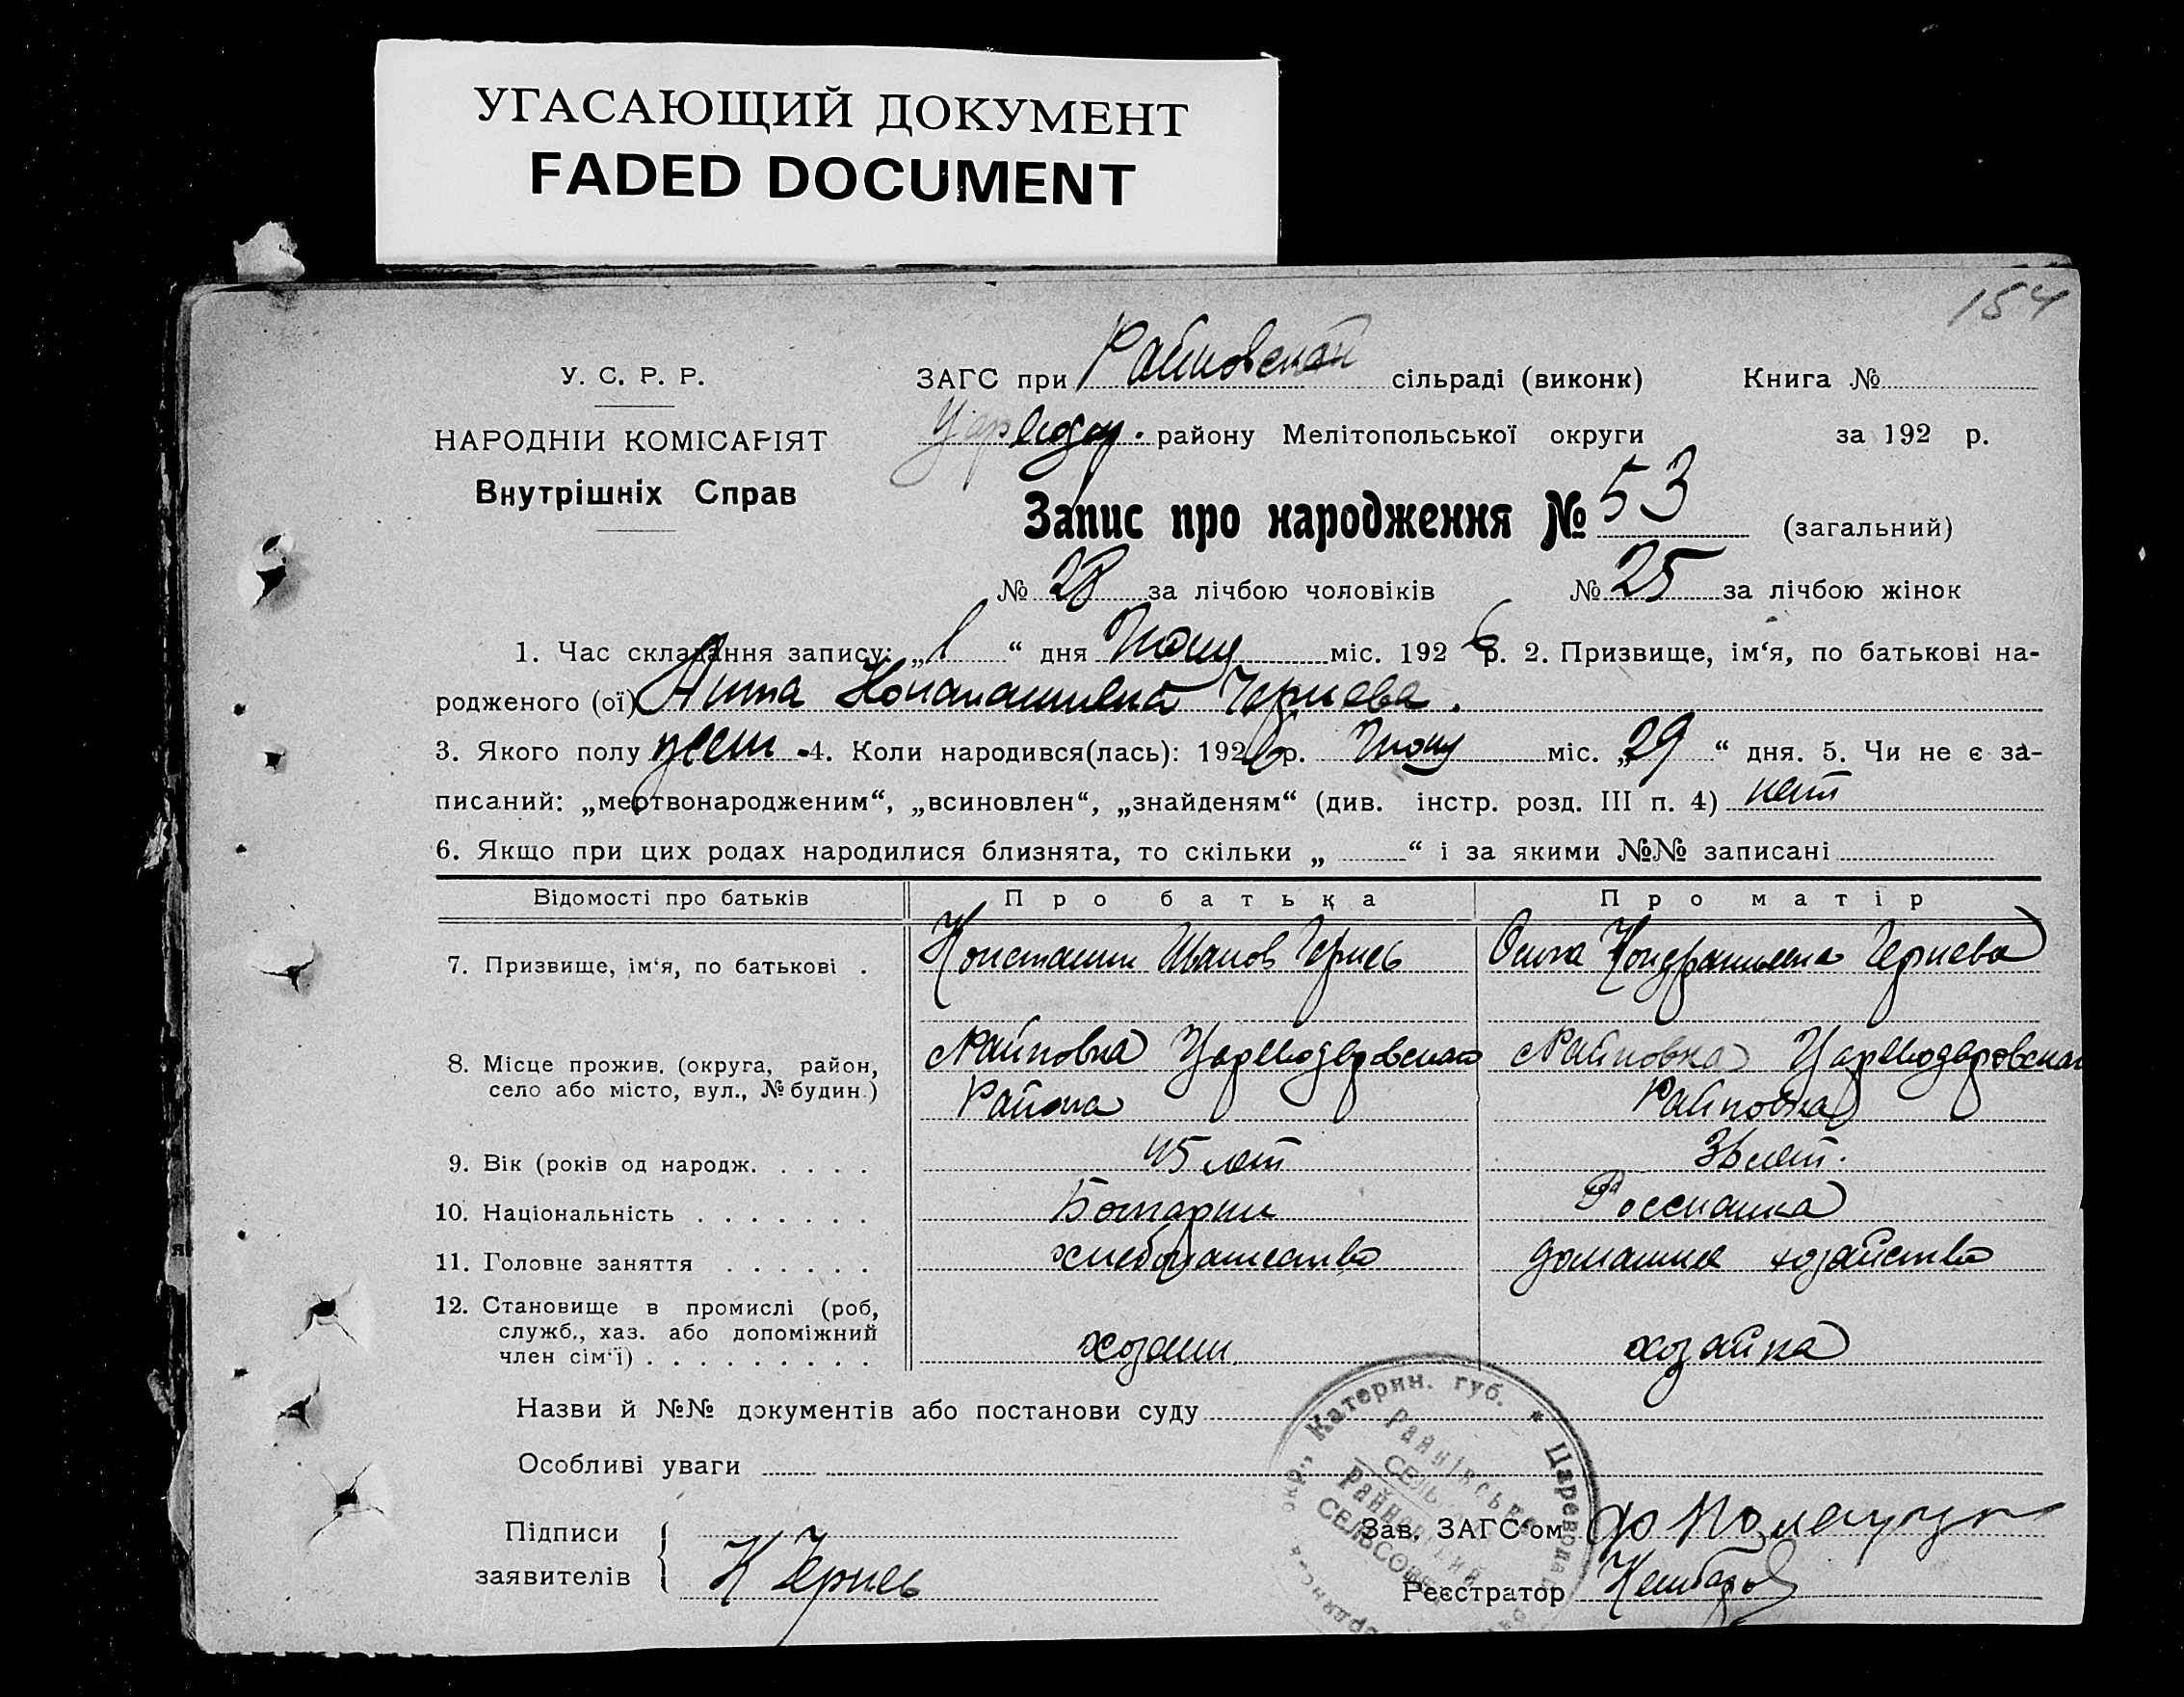 УГАСАЮЩИЙ ДОКУМЕНТ
FADED DOCUMENT
154
У. С. Р. Р.
НАРОДНІЙ КОМІСАРІЯТ
Внутрішніх Справ
ЗАГС при Райновской сільраді (виконк) Книга №
Цареводар. району Мелітопольської округи за 192 р.
Запис про народження № 53 (загальний)
№ 28 за лічбою чоловіків № 25 за лічбою жінок
1. Час складання запису: „1“ дня міс. 1926 р. 2. Призвище, ім‘я, по батькові на-
родженого (ої) Анна Чернева.
3. Якого полу жен 4. Коли народився(лась): 1926 р. міс. „29“ дня. 5. Чи не є за-
писаний: „мертвонародженим“, „всиновлен“, „знайденям“ (див. інстр. розд. III п. 4) нет
6. Якщо при цих родах народилися близнята, то скільки „ “ і за якими №№ записані
Відомості про батьків Про батька Про матір
7. Призвище, ім‘я, по батькові . Констанин Иванов Чернев Чернева
8. Місце прожив. (округа, район, село або місто, вул., № будин.) Райновка Цареводаровскаго Райновка
Района Райновка
9. Вік (років од народж. . . . . 45 лет 36 лет.
10. Національність . . . . . . . Болгарин Россианка
11. Головне заняття . . . . . . хлебопашество домашне хозайство
12. Становище в промислі (роб, служб., хаз. або допоміжний член сім‘ї) . . . . . . . . . хозаин хозайка
Назви й №№ документів або постанови суду
Особливі уваги
Підписи заявителів К Чернев
Зав. ЗАГС‘ом
Реєстратор
Катерин. губ. * Царевода
СЕЛЬ
Райновский
СЕЛЬСОВ